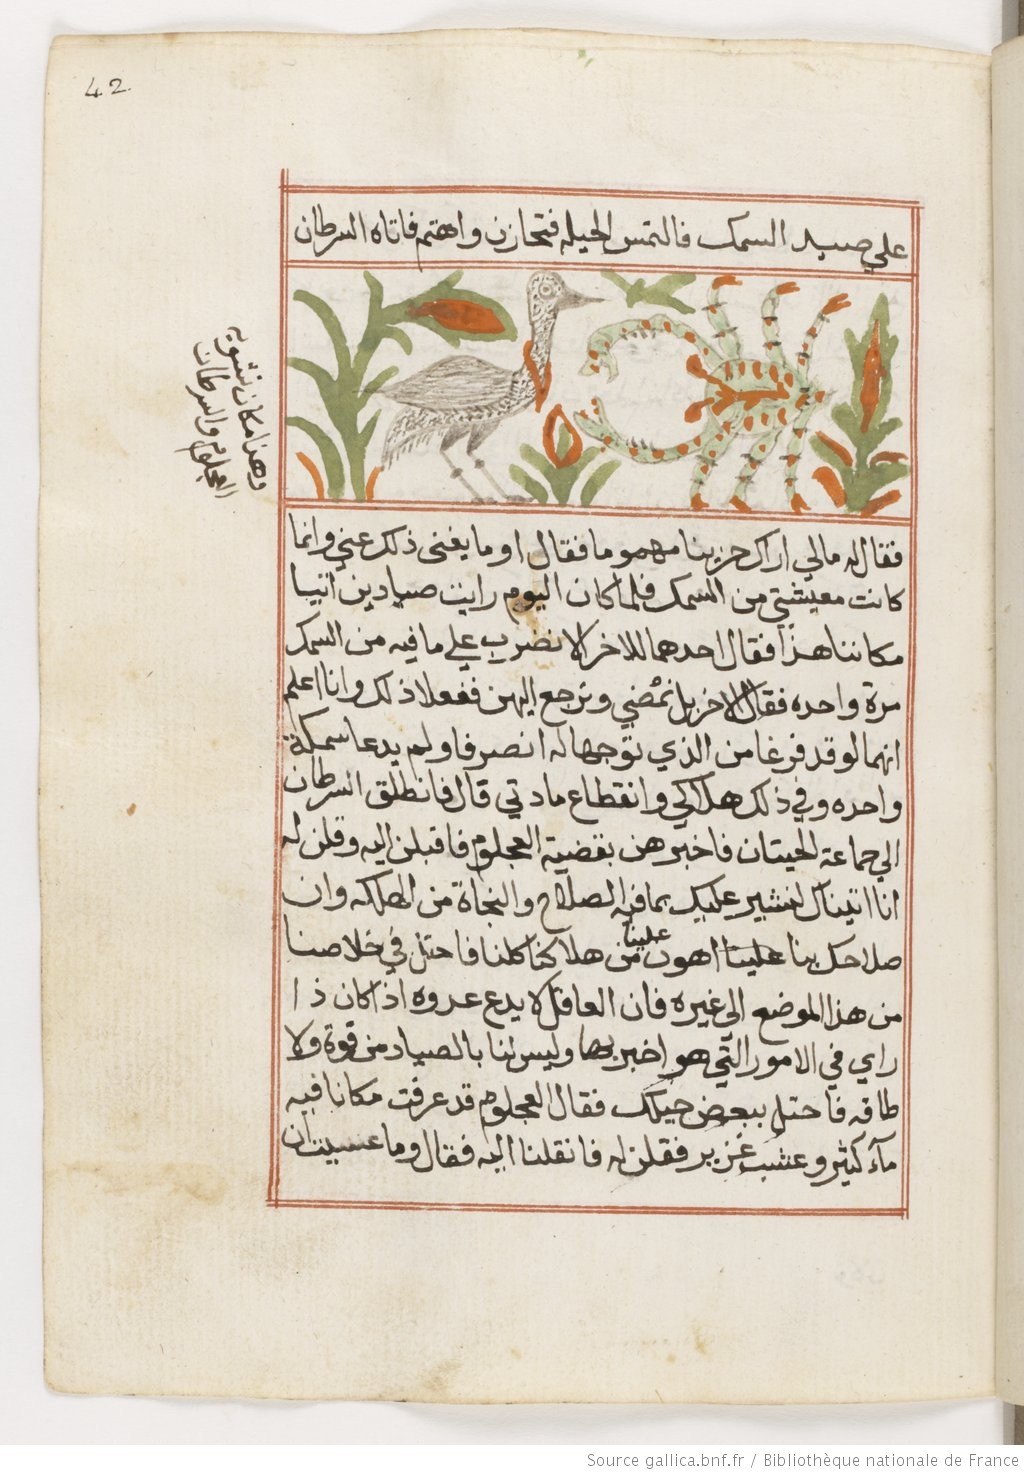 42
علي صيد السمك فالتمس الحيله فتحازن واهتم فاتاه السرطان
وهذا مكان تشويه
العجلوم والسرطان
فقال له مالي اراك حزينا مهموما فقال او ما يغنى ذلك عني وانما
كانت معيشتي من السمك فلما كان اليوم رايت صيادين اتيا
مكاننا هذا فقال احدهما للاخر الا نضرب علي ما فيه من السمك
مرة واحده فقال الاخر بل نمضي ونرجع اليهن ففعلا ذلك وانا اعلم
انهما لو قد فرغا من الذي توجها له انصرفا ولم يدعا سمكة
واحده وفي ذلك هلاكي وانقطاع مادتي قال فانطلق السرطان
الي جماعة الحيتان فاخبرهن بقضية العجلوم فاقبلن اليه وقلن له
انا اتيناك لنشير عليك بما فيه الصلاح والنجاة من الهلكه وان
صلاحك بنا علينا اهون علينا من هلاكنا كلنا فاحتل في خلاصنا
من هذا الموضع الى غيره فان العاقل لا يدع عدوه اذا كان ذا
راي في الامور التي هو اخبر بها وليس لنا بالصياد من قوة ولا
طاقه فاحتل ببعض حيلك فقال العجلوم قد عرفت مكانا فيه
مآء كثير وعشب غزير فقلن له فانقلنا اليه فقال وما عسيت ان
Source gallica.bnf.fr / Bibliothèque nationale de France